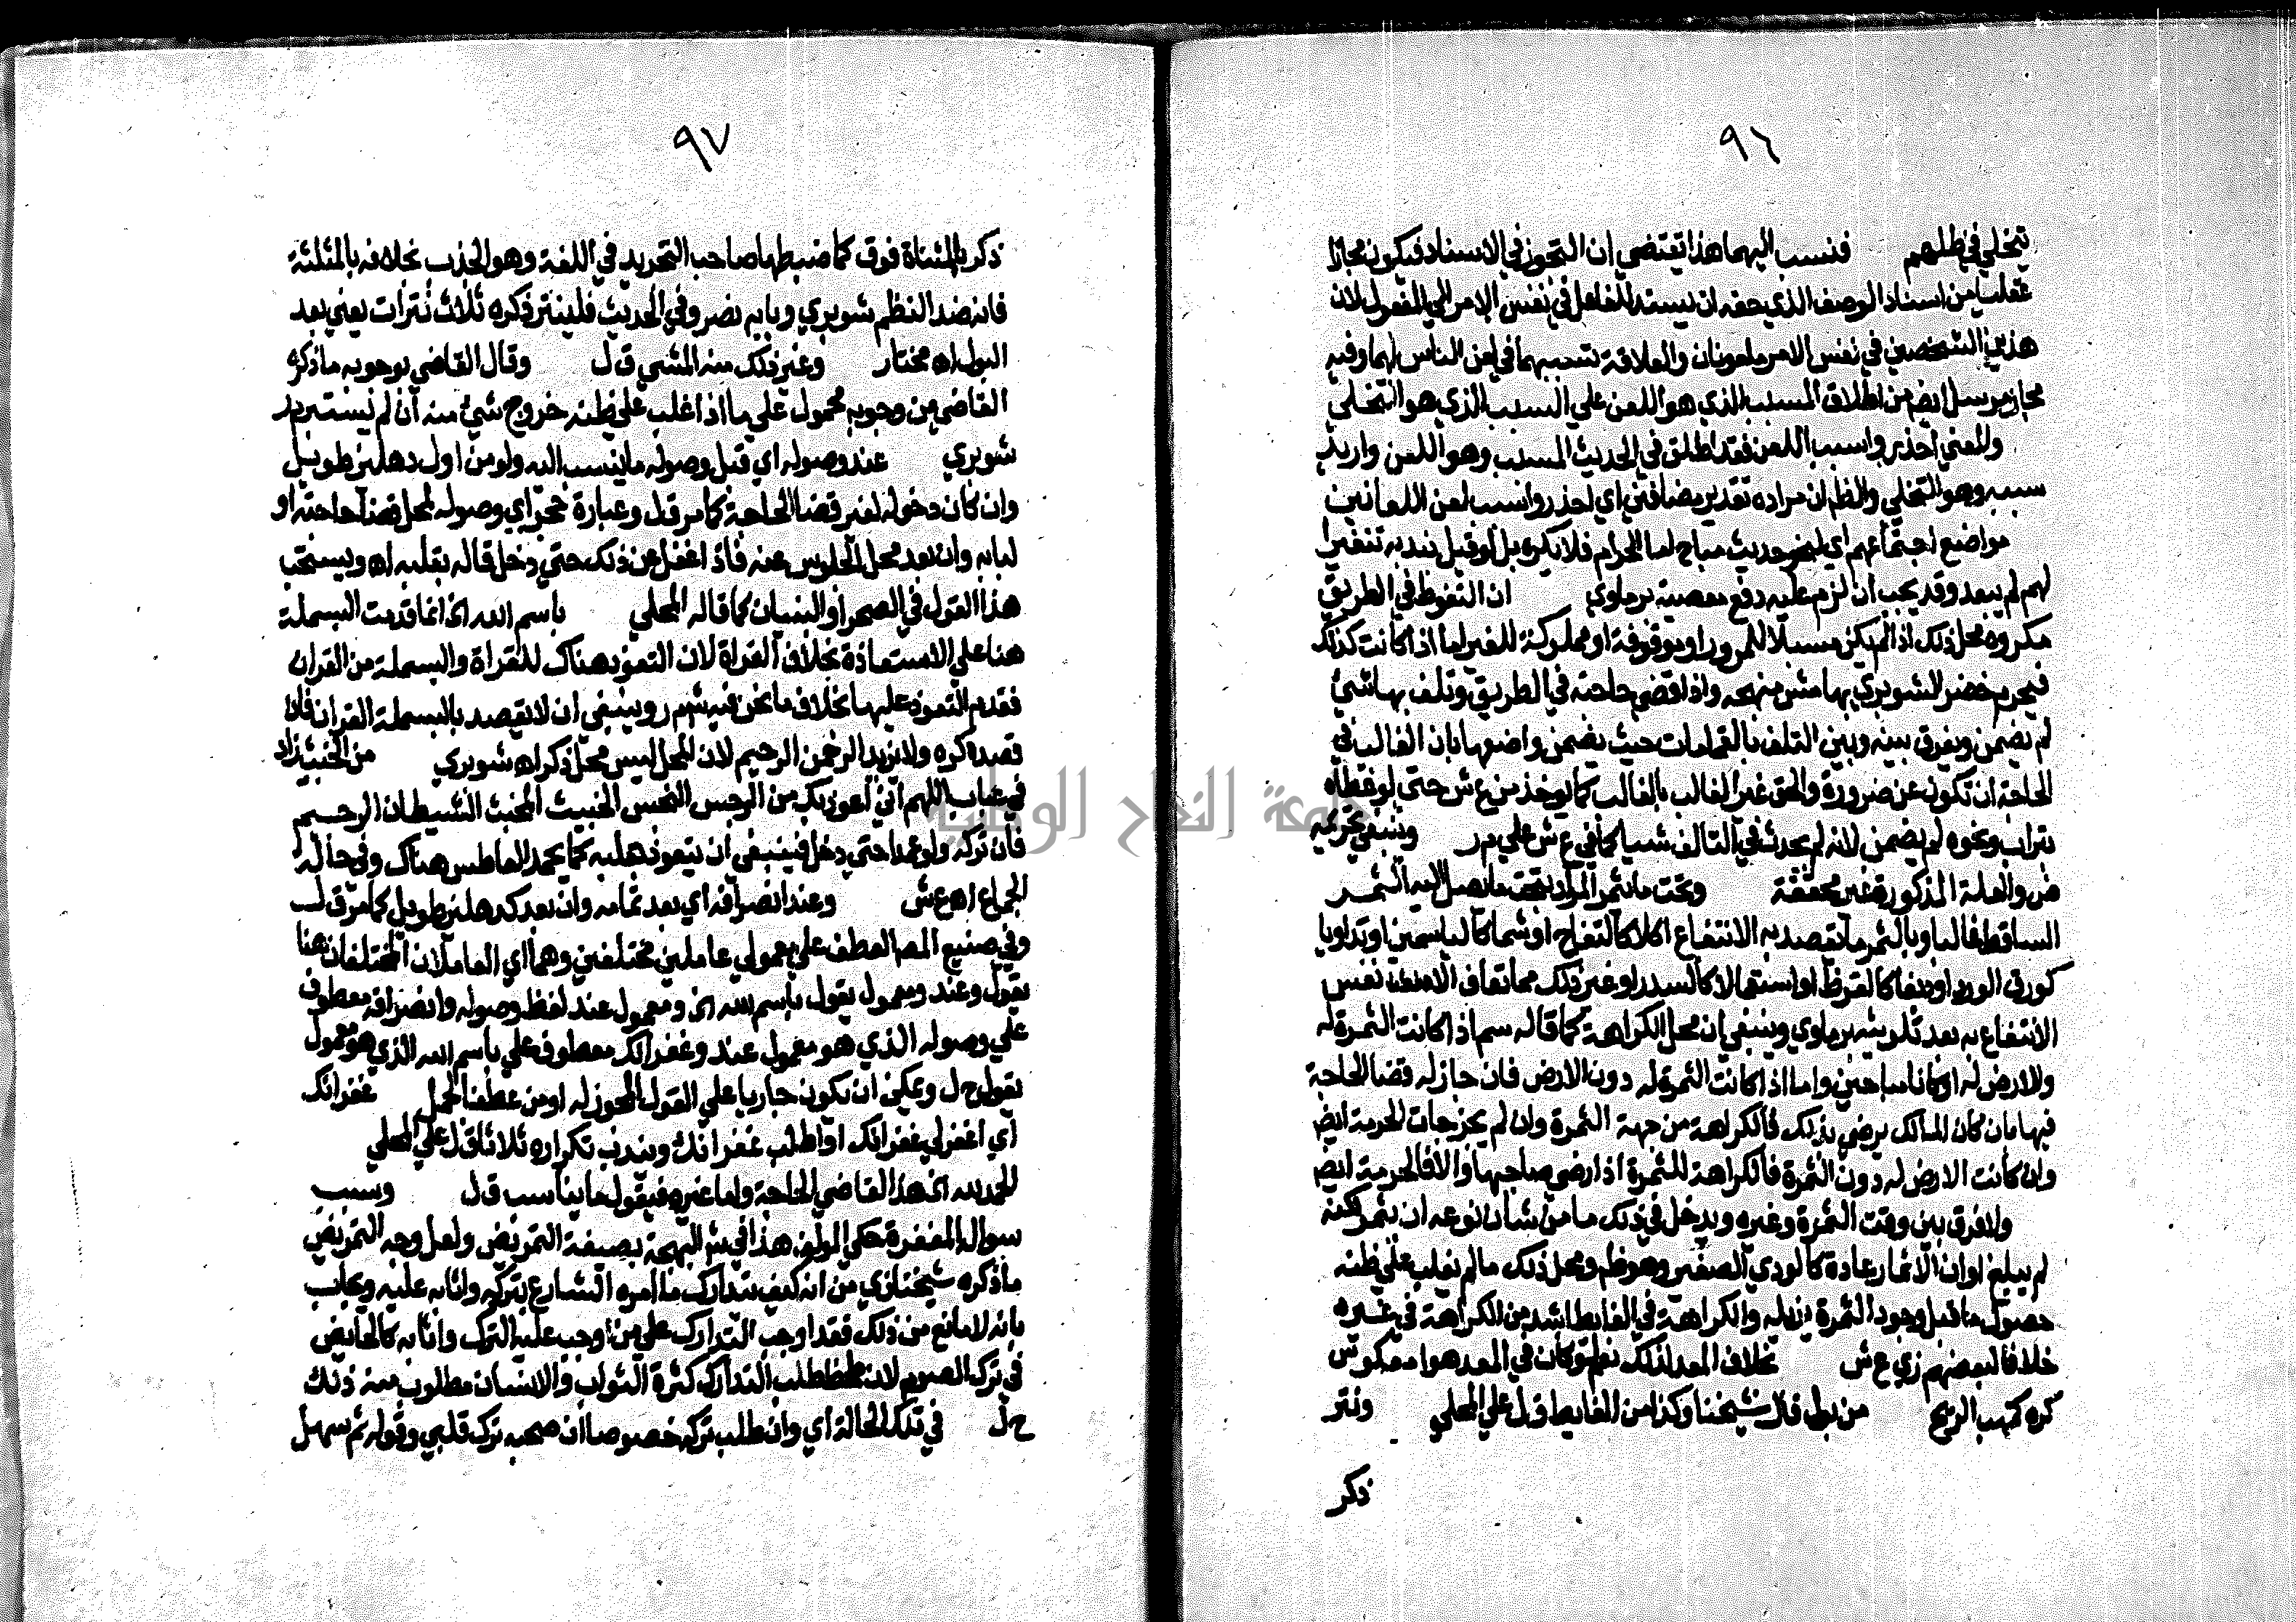 ٩٦
يتخلي في ظلهم فنسب اليهما هذا يقتضي ان التجوز في الاسناد فيكون مجازا
عقليا من اسناد الوصف الذي حقه ان يسند للفاعل في نفس الامر الي المفعول لان
هذين الشخصين في نفس الامر ملعونان والعلاقة تسببهما في لعن الناس لهما وفيه
مجاز مرسل ايض من اطلاق المسبب الذي هو اللعن علي السبب الذي هو التخلي
والمعني احذروا سبب اللعن فقد اطلق في الحديث المسبب وهو اللعن واريد
سببه وهو التخلي والظ ان مراده تقدير مضافين اي احذروا سبب لعن اللعانين
مواضع اجتماعهم اي لنحو حديث مباح اما الحرام فلا يكره بل لو قيل بندبه تنفيرا
لهم لم يبعد وقد يجب ان لزم عليه دفع معصية برماوي ان التغوط في الطريق
مكروه محل ذلك اذا لم يكن مسبلا للمرور او موقوفة او مملوكة للغير اما اذا كانت كذلك
فيحرم خضر للشوبري بهامش منهجه واذا قضي حاجته في الطريق وتلف بها شئ
لم يضمن ويفرق بينه وبين التلف بالقمامات حيث يضمن واضعها بان الغالب في
الحاجة ان تكون عن ضرورة والحق غير الغالب بالغالب كما يوخذ من ع ش حتي لو غطاه
بتراب ونحوه لم يضمن لانه لم يحدث في التالف شيا كما في ع ش علي م ر وينبغي تحريمه
ض والعلة المذكورة غير محققة وتحت ما يثمر المراد بتحت ما يصل اليه الثمر
الساقط غالبا وبالثمر ما يقصد به الانتفاع اكلا كالتفاح او شما كالياسمين او تداويا
كورق الورد او دبغا كالقرظ او استعمالا كالسدر او غير ذلك مما تعاف الانفس
الانتفاع به بعد تلويثه برماوي وينبغي ان محل الكراهة كما قاله سم اذا كانت الثمرة له
والارض له او كانا مباحين واما اذا كانت الثمرة له دون الارض فان جاز له قضا الحاجة
فيها بان كان المالك يرضي بذلك فالكراهة من جهة الثمرة وان لم يجز جات الحرمة ايض
وان كانت الارض له دون الثمرة فالكراهة للثمرة اذا رضي صاحبها والا فالحرمة ايض
ولا فرق بين وقت الثمرة وغيره ويدخل في ذلك ما من شان نوعه ان يثمر لكنه
لم يبلغ اوان الاثمار عادة كالودي الصغير وهو ظ ومحل ذلك ما لم يغلب علي ظنه
حصول ما قبل وجود الثمرة يزيله والكراهة في الغايط اشد من الكراهة في غيره
خلافا لبعضهم زي ع ش بخلاف المعد لذلك نعم لو كان في المعد هوا معكوس
كره كمهب الريح من بول قال شيخنا وكذا من الغايط ق ل علي المحلي ونتر
ذكر
٩٧
ذكر بالمثناة فوق كما ضبطها صاحب التحرير في اللغة وهو الجذب بخلافه بالمثلثة
فانه ضد النظم شوبري وبابه نصر وفي الحديث فلينتر ذكره ثلاث نترات يعني بعد
البول اه مختار وغير ذلك منه المشي ق ل وقال القاضي بوجوبه ما ذكره
القاضي من وجوبه محمول علي ما اذا غلب علي ظنه خروج شئ منه ان لم يستبر م ر
شوبري عند وصوله اي قبل وصوله ما ينسب اليه ولو من اول دهليز طويل
وان كان دخوله لغير قضا الحاجة كما مر ق ل وعبارة حجر اي وصوله لمحل قضا حاجته او
لبابه وان بعد محل الجلوس عنه فاذا غفل عن ذلك حتي دخل قاله بقلبه اه ويستحب
هذا القول في الصحرا والبنيان كما قاله المحلي باسم الله الخ انما قدمت البسملة
هنا علي الاستعاذة بخلاف القراة لان التعوذ هناك للقراة والبسملة من القران
فقدم التعوذ عليها بخلاف ما نحن فيه شم ر وينبغي ان لا يقصد بالبسملة القران فان
قصده كره ولا يزيد الرحمن الرحيم لان المحل ليس محل ذكر اه شوبري من الخبث زاد
في عباب اللهم اني اعوذ بك من الرجس النجس الخبيث المخبث الشيطان الرجيم
فان تركه ولو عمدا حتي دخل فينبغي ان يتعوذ بقلبه كما يحمد العاطس هناك وفي حالة
الجماع اه ع ش وعند انصرافه اي بعد تمامه وان بعد كدهليز طويل كما مر ق ل
وفي صنيع المص العطف علي معمولي عاملين مختلفين وهما اي العاملان المختلفان هنا
يقول وعند ومعمول يقول باسم الله الخ ومعمول عند لفظ وصوله وانصرافه معطوف
علي وصوله الذي هو معمول عند وغفرانك معطوف علي باسم الله الذي هو معمول
يقول ح ل ويمكن ان يكون جاريا علي القول المجوز له او من عطف الجمل غفرانك
اي اغفر لي غفرانك او اطلب غفرانك ويندب تكراره ثلاثا ق ل علي المحلي
الحمد لله الخ هذا لقاضي الحاجة واما غيره فيقول ما يناسب ق ل وسبب
سواله المغفرة حكي المولف هذا في ش البهجة بصيغة التمريض ولعل وجه التمريض
ما ذكره شيخنا زي من انه كيف يتدارك ما امره الشارع بتركه واثابه عليه ويجاب
بانه لا مانع من ذلك فقد اوجب التدارك علي من اوجب عليه الترك واثابه كالحايض
في ترك الصوم لان ملحظ طلب التدارك كثرة الثواب والانسان مطلوب منه ذلك
ح ل في تلك الحالة اي وان طلب تركه خصوصا ان صحبه ترك قلبي وقوله ثم سهل